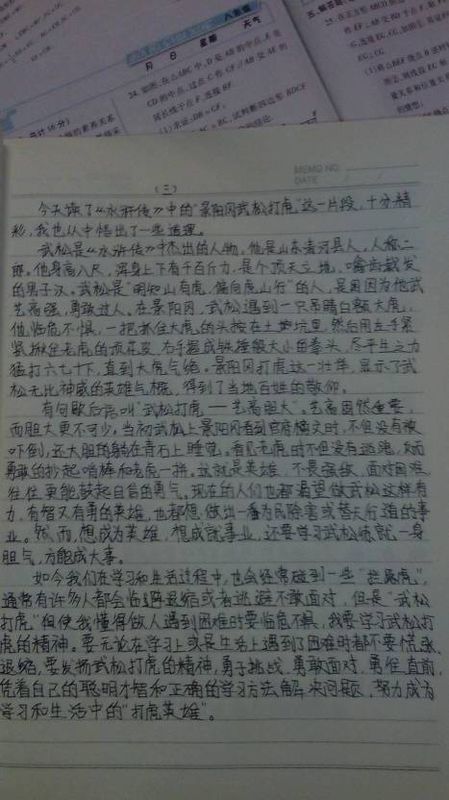 八年级
月 日 星期 天气
24.如图,在△ABC中,D是AB的中点,E是
CD的中点,过点C作CF//AB交AE的
延长线于点F,连接BF.
(1)求证:DB=CF;
MEMO NO.
DATE / /
(三)
今天读了《水浒传》中的"景阳冈武松打虎"这一片段,十分精
彩,我也从中悟出了一些道理。
武松是《水浒传》中杰出的人物,他是山东清河县人,人称二
郎。他身高八尺,浑身上下有千百斤力,是个顶天立地,噙齿戴发
的男子汉。武松是"明知山有虎,偏向虎山行"的人,是因为他武
艺高强,勇敢过人,在景阳冈,武松遇到一只吊睛白额大虎,
他临危不惧,一把抓住大虎的头按在土地坑里,然后用左手紧
紧揪住老虎的顶花皮,右手握成铁锤般大小的拳头,尽平生之力
猛打六七十下,直到大虎气绝。景阳冈打虎这一壮举,显示了武
松无比神威的英雄气概,得到了当地百姓的敬仰。
有句歇后语叫"武松打虎——艺高胆大"。艺高固然重要,
而胆大更不可少。当初武松上景阳冈看到官府榜文时,不但没有被
吓倒,还大胆的躺在青石上睡觉。看见老虎时不但没有逃跑,反而
勇敢的抄起哨棒和老虎一拼。这就是英雄,不畏强敌,面对困难
往往更能鼓起自信的勇气。现在的人们也都渴望做武松这样有
力、有智又有勇的英雄,也都想做出一番为民除害或替天行道的事
业。然而,想成为英雄,想成就事业,还要学习武松练就一身
胆气,方能成大事。
如今我们在学习和生活过程中,也会经常碰到一些"拦路虎",
通常有许多人都会临遇退缩或者逃避不敢面对,但是"武松
打虎"但使我懂得做人遇到困难时要临危不惧,我要学习武松打
虎的精神。要无论在学习上或是生活上遇到了困难时都不要慌张、
退缩,要发扬武松打虎的精神,勇于挑战,勇敢面对,勇往直前,
凭着自己的聪明才智和正确的学习方法解决问题,努力成为
学习和生活中的"打虎英雄"。